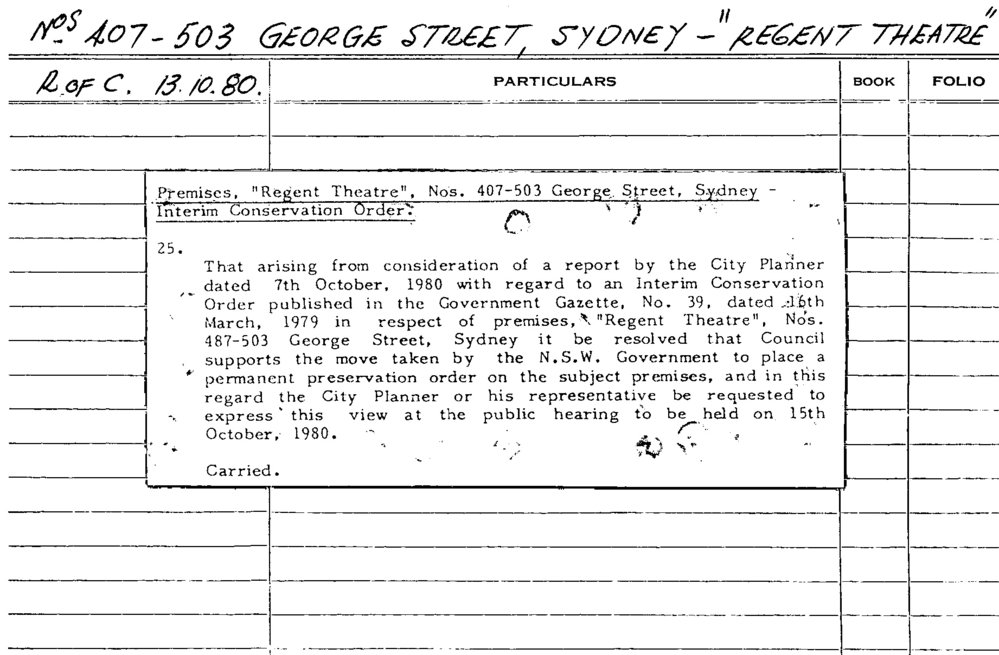 Nos 407-503 GEORGE STREET, SYDNEY - "REGENT THEATRE"
R OF C. 13.10.80. PARTICULARS BOOK FOLIO
Premises, "Regent Theatre", Nos. 407-503 George Street, Sydney -
Interim Conservation Order.
25.
That arising from consideration of a report by the City Planner
dated 7th October, 1980 with regard to an Interim Conservation
Order published in the Government Gazette, No. 39, dated 16th
March, 1979 in respect of premises, "Regent Theatre", Nos.
487-503 George Street, Sydney it be resolved that Council
supports the move taken by the N.S.W. Government to place a
permanent preservation order on the subject premises, and in this
regard the City Planner or his representative be requested to
express this view at the public hearing to be held on 15th
October, 1980.
Carried.